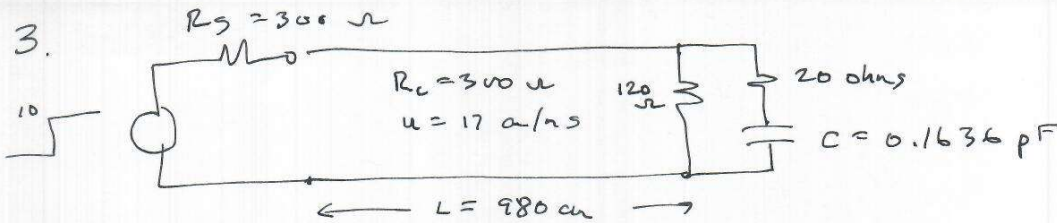 3.
Rs = 300 Ω
10
Rc = 300 Ω
u = 17 cm/ns
120 Ω
20 ohms
C = 0.1636 pF
L = 980 cm